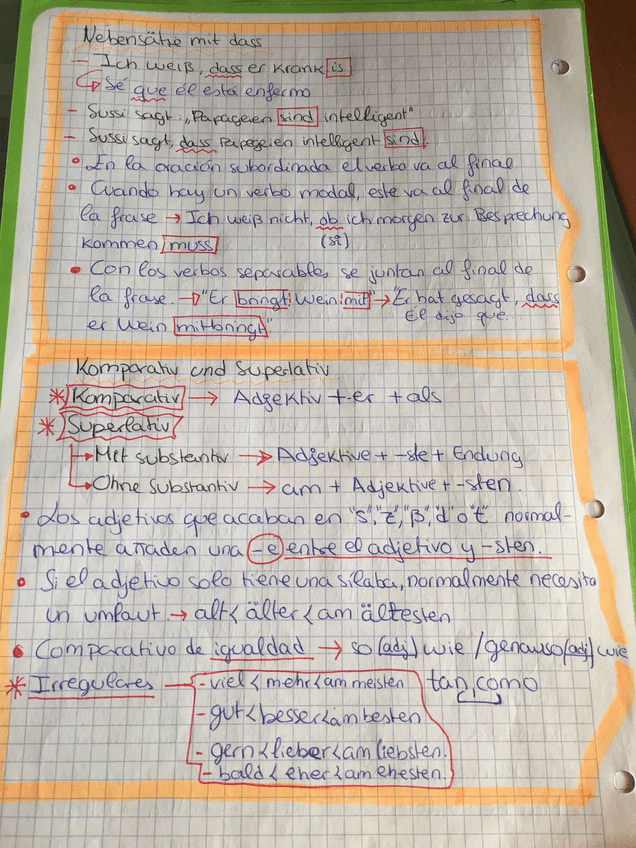 Nebensätze mit dass
- Ich weiß, dass er krank is
↳ Sé que él está enfermo
- Sussi sagt: „Papageien sind intelligent"
- Sussi sagt, dass Papageien intelligent sind.
• En la oración subordinada el verbo va al final
• Cuando hay un verbo modal, este va al final de
la frase → Ich weiß nicht, ob ich morgen zur Besprechung
kommen muss (si)
• Con los verbos separables, se juntan al final de
la frase. → "Er bringt Wein mit" → "Er hat gesagt, dass
er Wein mitbringt" El dijo que
Komparativ und Superlativ
* Komparativ → Adjektiv + -er + als
* Superlativ
→ Mit substantiv → Adjektive + -ste + Endung
→ Ohne substantiv → am + Adjektive + -sten.
• Los adjetivos que acaban en "s", "z", "ß", "d" o "t" normal-
mente añaden una -e entre el adjetivo y -sten.
• Si el adjetivo solo tiene una sílaba, normalmente necesita
un umlaut. → alt < älter < am ältesten
• Comparativo de igualdad → so (adj) wie / genauso (adj) wie
* Irregulares → - viel < mehr < am meisten tan, como
- gut < besser < am besten
- gern < lieber < am liebsten.
- bald < eher < am ehesten.